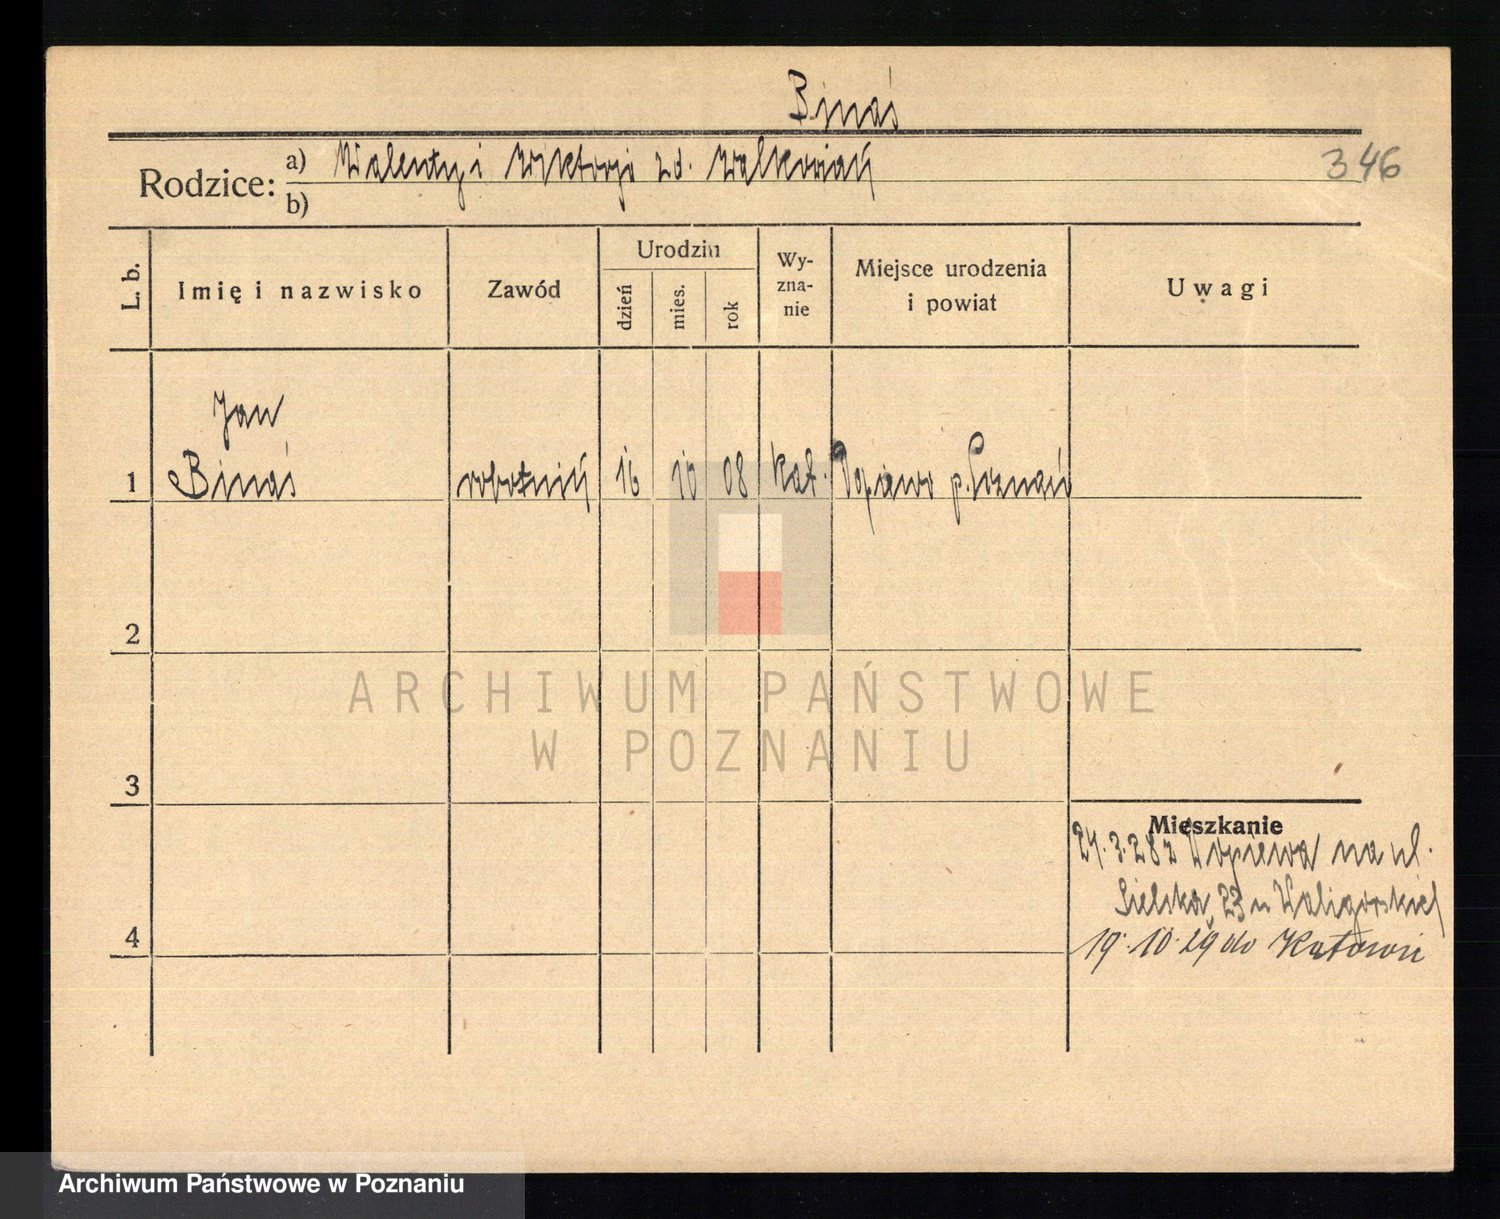 Binaś
Rodzice: a) Walenty i Wiktorji zd. Walkowiak
346
b)
L. b.
Imię i nazwisko
Zawód
Urodzin
dzień
mies.
rok
Wy-
zna-
nie
Miejsce urodzenia
i powiat
Uwagi
Jan
1 Binaś robotnik 16 10 08 kat. Dopiewo p. Poznań
2
ARCHIWUM PAŃSTWOWE
W POZNANIU
3
Mieszkanie
24.3.28 z Dopiewa na ul.
Sielska 23 u Waligórskiej
4
19.10.29 do Katowic
Archiwum Państwowe w Poznaniu